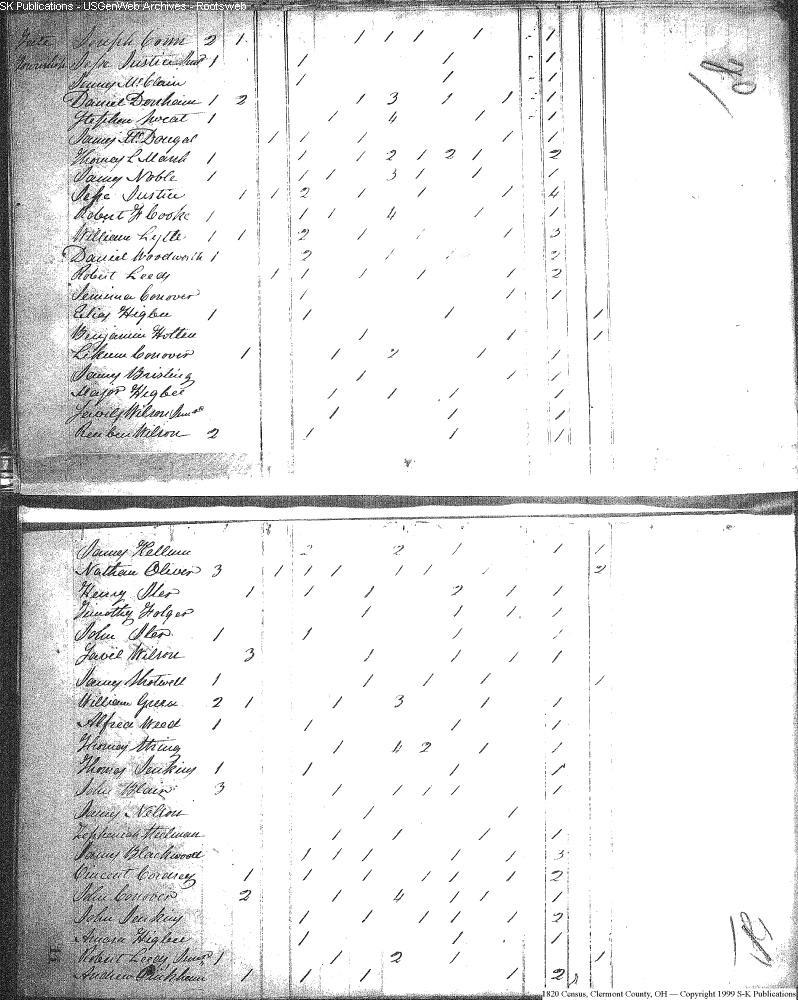 SK Publications - USGenWeb Archives - Rootsweb
Joseph Conn 2 1 1 1 1 1 1
Township Jesse Justice Junr 1 1 1 1
James McClain 1 1 1
Daniel Donham 1 2 1 3 1 1 1
Stephen Sweat 1 1 4 1 1
James McDougal 1 1 1 1 1
Thomas L Marsh 1 1 1 2 1 2 1 2
James Noble 1 1 1 1 3 1 1 1
Jesse Justice 1 1 2 1 1 1 4
Robert F Cooke 1 1 1 4 1 1
William Lytle 1 1 2 1 1 1 3
Daniel Woodworth 1 2 1 1 2
Robert Leeds 1 1 1 1 1 1 2
Jemima Conover 1 1 1
Elias Higbee 1 1 1 1
Benjamin Holten 1 1 1
Conover 1 1 2 1 1
James Brisling 1 1 1
Major Higbee 1 1 1 1
Wilson Junr 1 1 1
Reuben Wilson 2 1 1 1
James Kellum 2 2 1 1 1
Nathan Oliver 3 1 1 1 1 1 1 2
Henry Iler 1 1 1 2 1 1
Timothy Folger 1 1 1 1
John Iler 1 1 1 1
Wilson 3 1 1 1 1
James Shotwell 1 1 1 1 1
William Green 2 1 1 3 1 1
Alfred Weed 1 1 1 1
Thomas String 1 4 2 1 1
Thomas Jenkins 1 1 1 1
John Blair 3 1 1 1 1 1
James Nelson 1 1
Zephaniah 1 1 1 1
James Blackwood 1 1 1 1 1 3
Vincent 1 1 1 1 1 1 2
John Conover 2 1 4 1 1 1
John Jenkins 1 1 1 1 1 2
Amasa Higbee 1 1 1
Robert Leeds Junr 1 1 2 1 1
Andrew 1 1 1 1 2
1820 Census, Clermont County, OH — Copyright 1999 S-K Publications